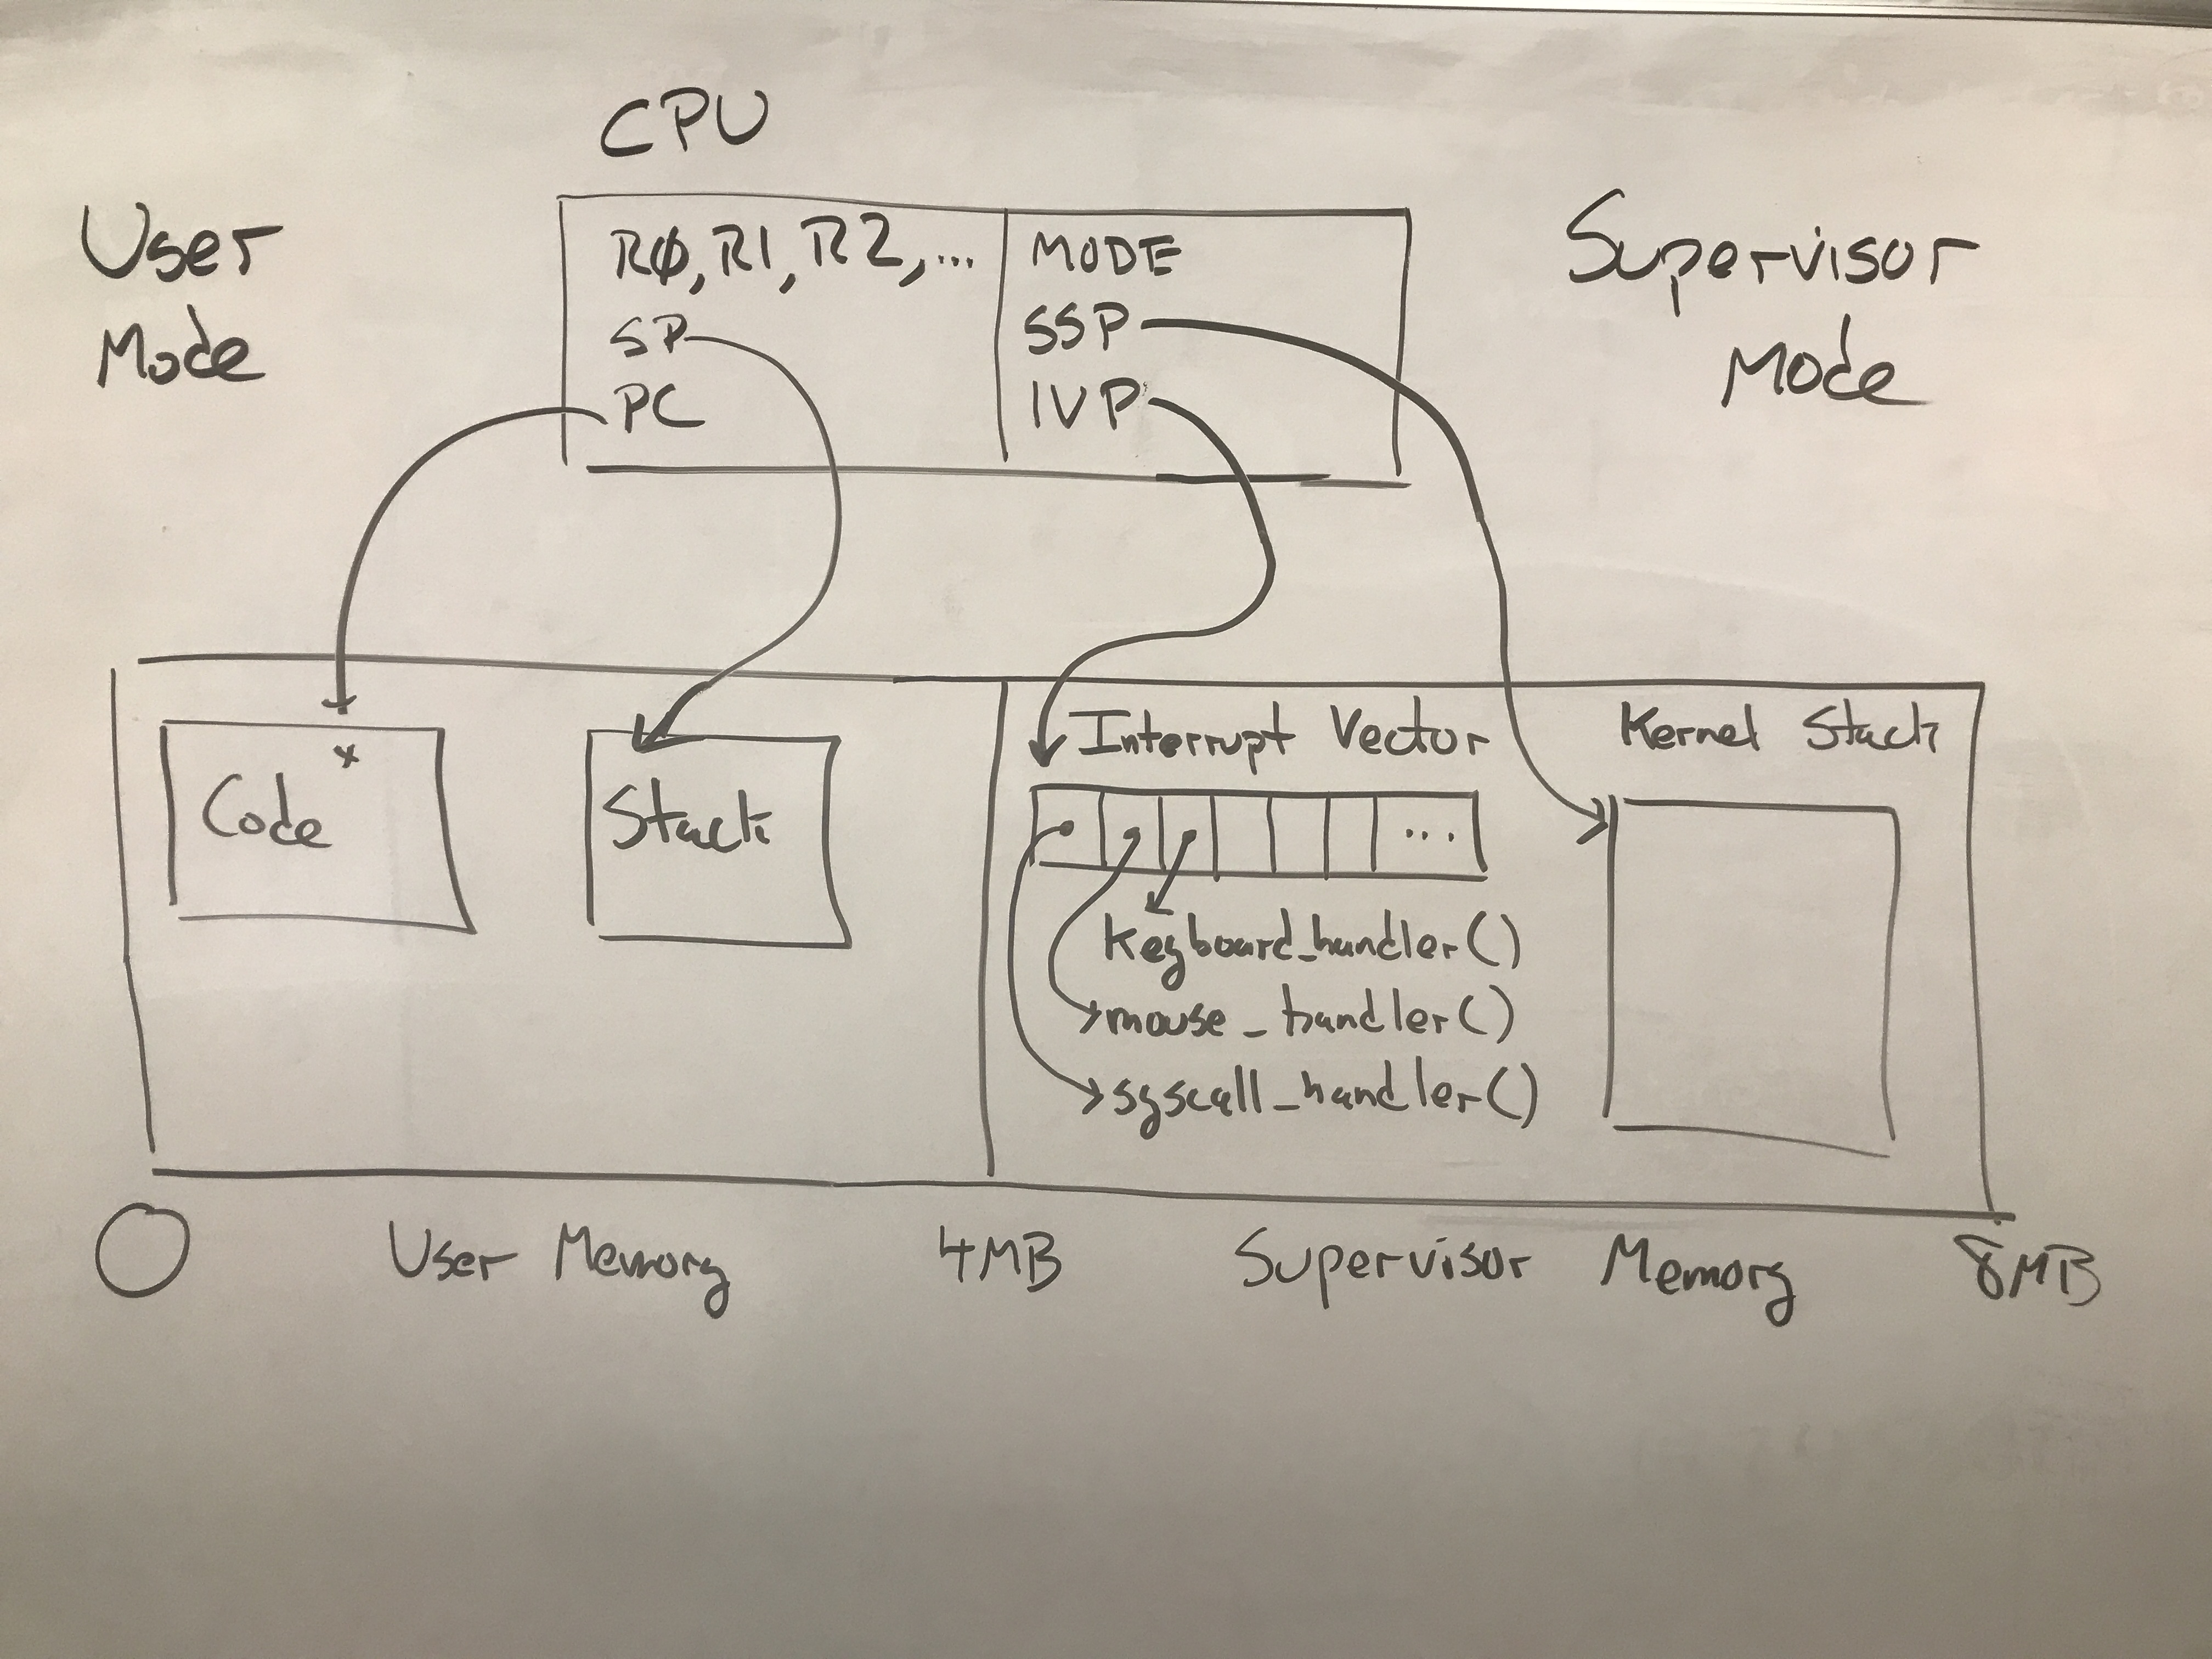 CPU
User
Mode
Supervisor
Mode
RØ, R1, R2, ...
SP
PC
MODE
SSP
IVP
Code
x
Stack
Interrupt Vector
...
keyboard_handler()
mouse_handler()
syscall_handler()
Kernel Stack
0
User Memory
4MB
Supervisor Memory
8MB